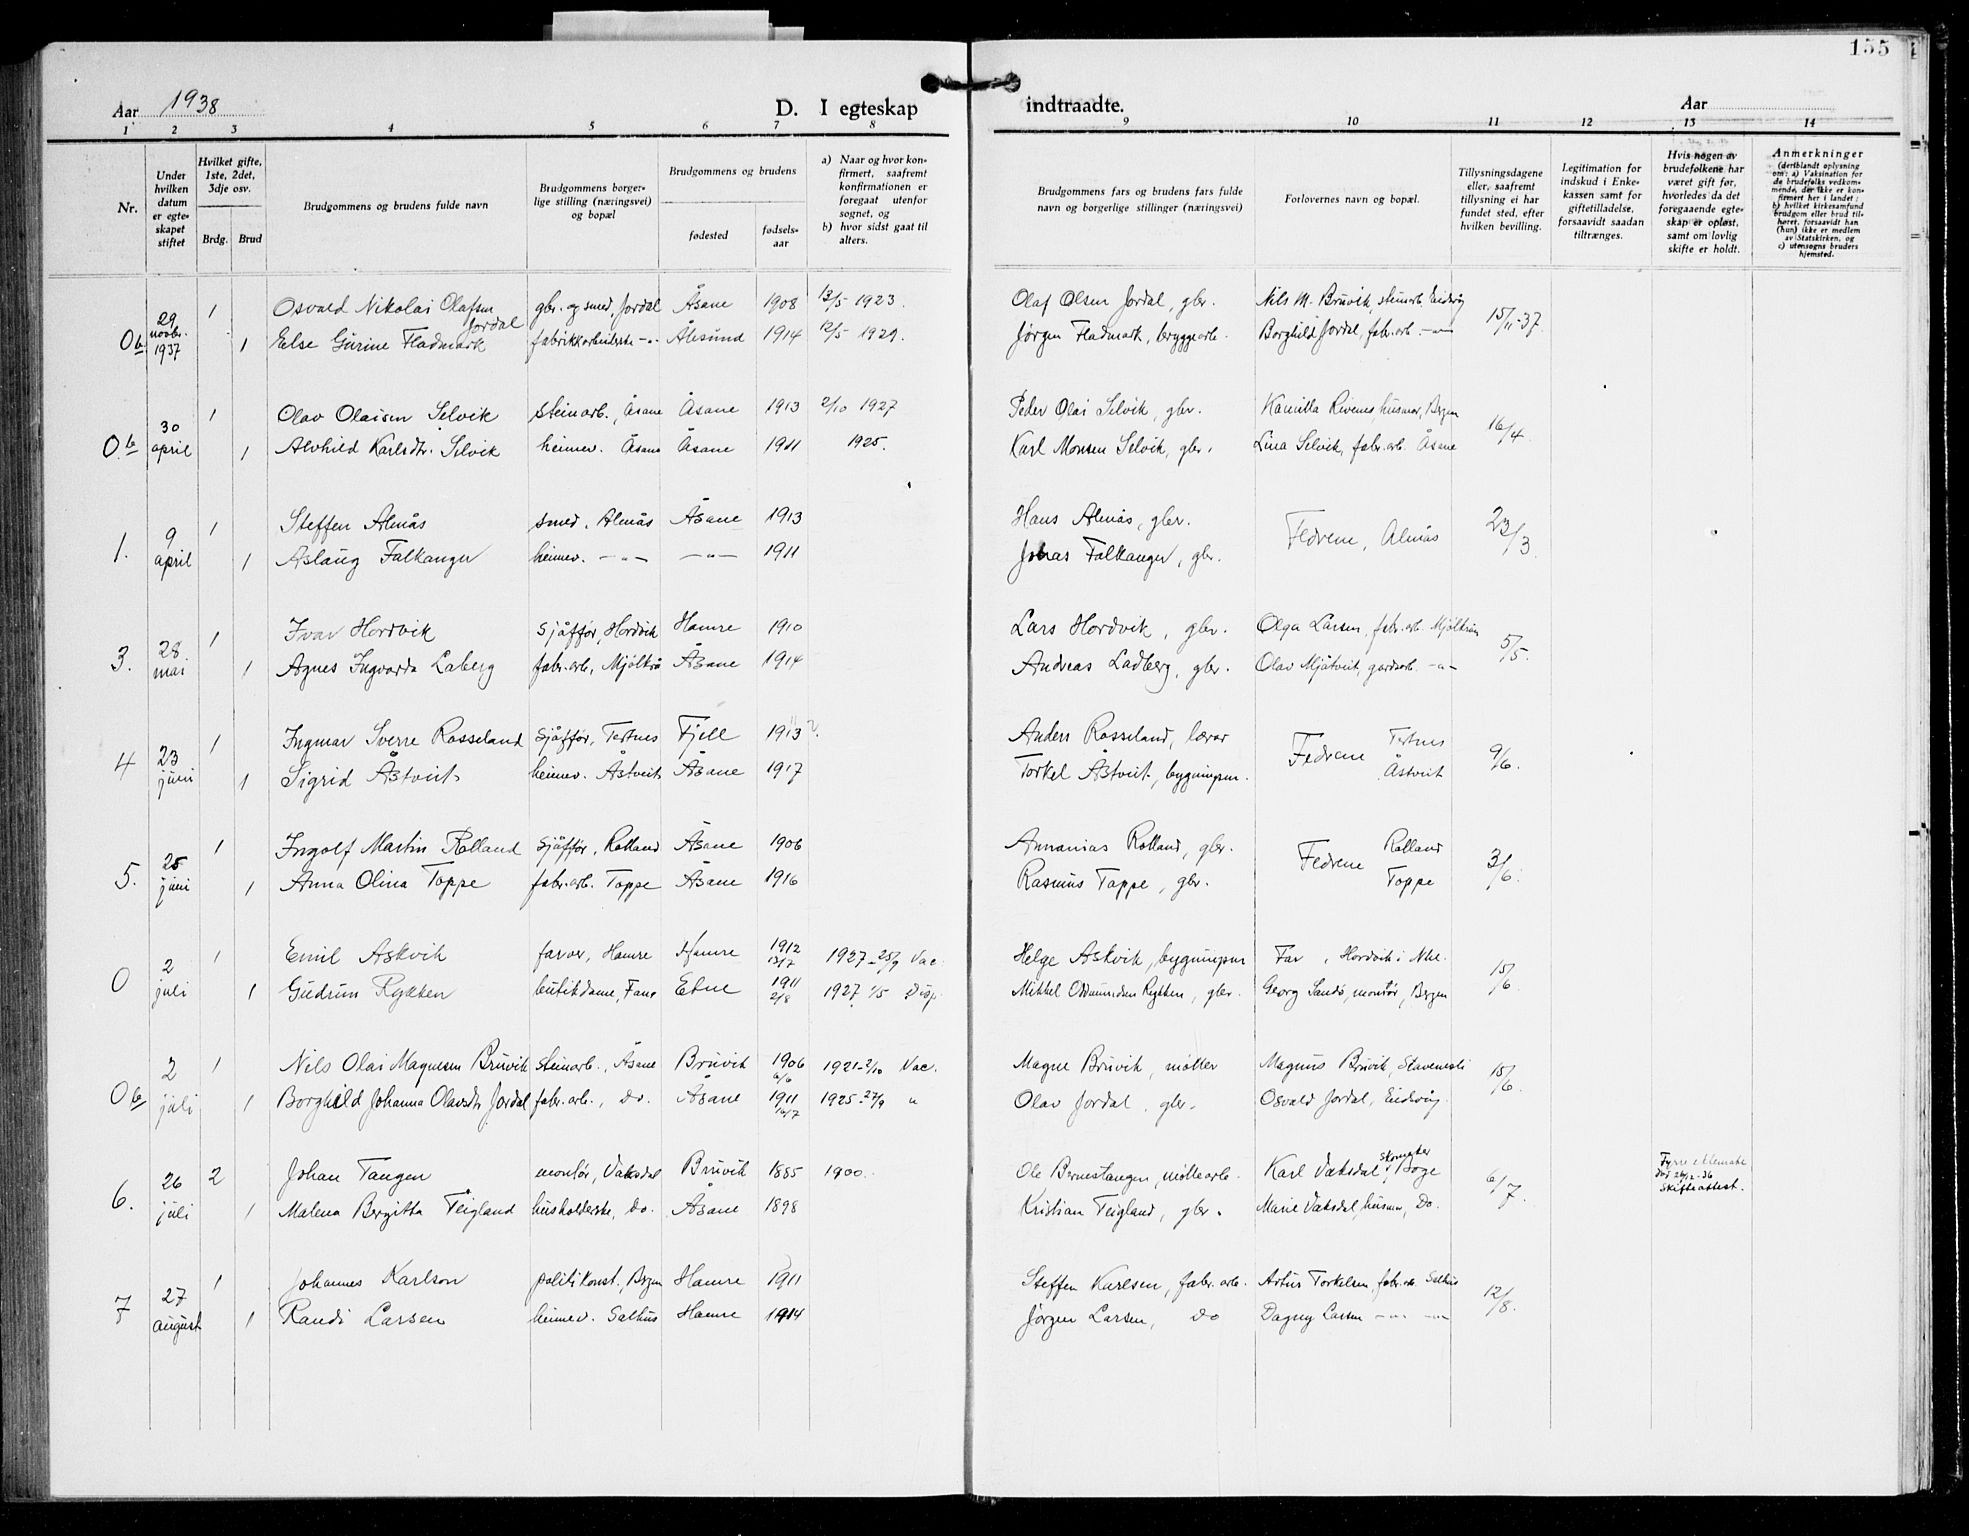 155
Aar 1938 D. I egteskap indtraadte. Aar
1 2 3 4 5 6 7 8 9 10 11 12 13 14
Nr.
Under hvilken datum er egteskapet stiftet
Hvilket gifte, 1ste, 2det, 3dje osv.
Brdg. Brud
Brudgommens og brudens fulde navn
Brudgommens borgerlige stilling (næringsvei) og bopæl
Brudgommens og brudens
fødested fødselsaar
a) Naar og hvor konfirmert, saafremt konfirmationen er foregaat utenfor sognet, og
b) hvor sidst gaat til alters.
Brudgommens fars og brudens fars fulde navn og borgerlige stillinger (næringsvei)
Forlovernes navn og bopæl.
Tillysningsdagene eller, saafremt tillysning ei har fundet sted, efter hvilken bevilling.
Legitimation for indskud i Enkekassen samt for giftetilladelse, forsaavidt saadan tiltrænges.
Hvis nogen av brudefolkene har været gift før, hvorledes da det foregaaende egteskap er opløst, samt om lovlig skifte er holdt.
Anmerkninger (deriblandt oplysning om: a) Vaksination for de brudefolks vedkommende, der ikke er konfirmert her i landet; b) hvilket kirkesamfund brudgom eller brud tilhører, forsaavidt han (hun) ikke er medlem av Statskirken, og c) utensogns bruders hjemsted.
Ob 29 novbr. 1937 1 Osvald Nikolai Olafsen Jordal gbr. og smed, Jordal Åsane 1908 13/5 1923. Olaf Olsen Jordal, gbr. Nils M. Bruvik, steinarb. Eidsvåg 15/11-37.
1 Else Gurine Fladmark fabrikkarbeiderske -"- Ålesund 1914 12/5 1929. Jørgen Fladmark, bryggearb. Borghild Jordal, fabr.arb. -"-
Ob 30 april 1 Olav Olaisen Selvik steinarb., Åsane Åsane 1913 2/10 1927 Peder Olai Selvik, gbr. Kamilla Rivenes husmor, Bergen 16/4.
1 Alvhild Karlsdtr. Selvik heimev. Åsane Åsane 1911 1925. Karl Monsen Selvik, gbr. Lina Selvik, fabr.arb. Åsane
1. 9 april 1 Steffen Almås smed, Almås Åsane 1913 Hans Almås, gbr. Fedrene, Almås 23/3.
1 Aslaug Falkanger heimev. -"- -"- 1911 Jonas Falkanger, gbr.
3. 28 mai 1 Ivar Hordvik sjåfför, Hordvik Hamre 1910 Lars Hordvik, gbr. Olga Larsen, fabr.arb. 5/5.
1 Agnes Ingvarda Laberg fabr.arb., Åsane 1914 Andreas Ladberg, gbr. Olav Mjåtveit, gardsarb. -"-
4 23 juni 1 Ingmar Sverre Rosseland sjåfför, Tertnes Fjell 1913 Anders Rosseland, lærar Fedrene Tertnes 9/6.
1 Sigrid Åstveit heimev. Åstveit Åsane 1917 Torkel Åstveit, bygningsm. Åstveit
5. 25 juni 1 Ingolf Martin Rolland sjåfför, Rolland Åsane 1906 Annanias Rolland, gbr. Fedrene Rolland 3/6.
1 Anna Olina Toppe fabr.arb. Toppe Åsane 1916 Rasmus Toppe, gbr. Toppe
O 2 juli 1 Emil Askvik farver, Hamre Hamre 1912 13/7 1927-25/9 Vac. Helge Askvik, bygningsm Far, Hordvik i Nhl. 15/6.
1 Gudrun Rykken butikdame, Fana Etne 1911 2/8 1927 1/5 Disp. Mikkel Oddmundsen Rykken, gbr. Georg Sandø, montør, Bergen
Ob 2 juli 1 Nils Olai Magnesen Bruvik steinarb., Åsane Bruvik 1906 6/6 1921-2/10 Vac. Magne Bruvik, møller Magnus Bruvik, 15/6.
1 Borghild Johanna Olavsdtr Jordal fabr.arb., Do. Åsane 1911 1925-27/9 " Olav Jordal, gbr. Osvald Jordal, Eidsvåg.
6. 26 juli 2 Johan Tangen montør, Vaksdal Bruvik 1885 1900. Ole Brunestangen, møllearb. Karl Vaksdal, skomaker Boge 6/7. Fyrre ektemake død 26/12-36 Skifteattest.
1 Malena Bergitta Teigland husholderske, Do. Åsane 1898 Kristian Teigland, gbr. Marie Vaksdal, husmor, Do.
7 27 august 1 Johannes Karlson politikonst., Bergen Hamre 1911 Steffen Karlsen, fabr.arb. Artur Torkelsen, fabr.arb. Salhus 12/8.
1 Randi Larsen heimev. Salhus Hamre 1914 Jørgen Larsen, Do Dagny Larsen -"- -"-